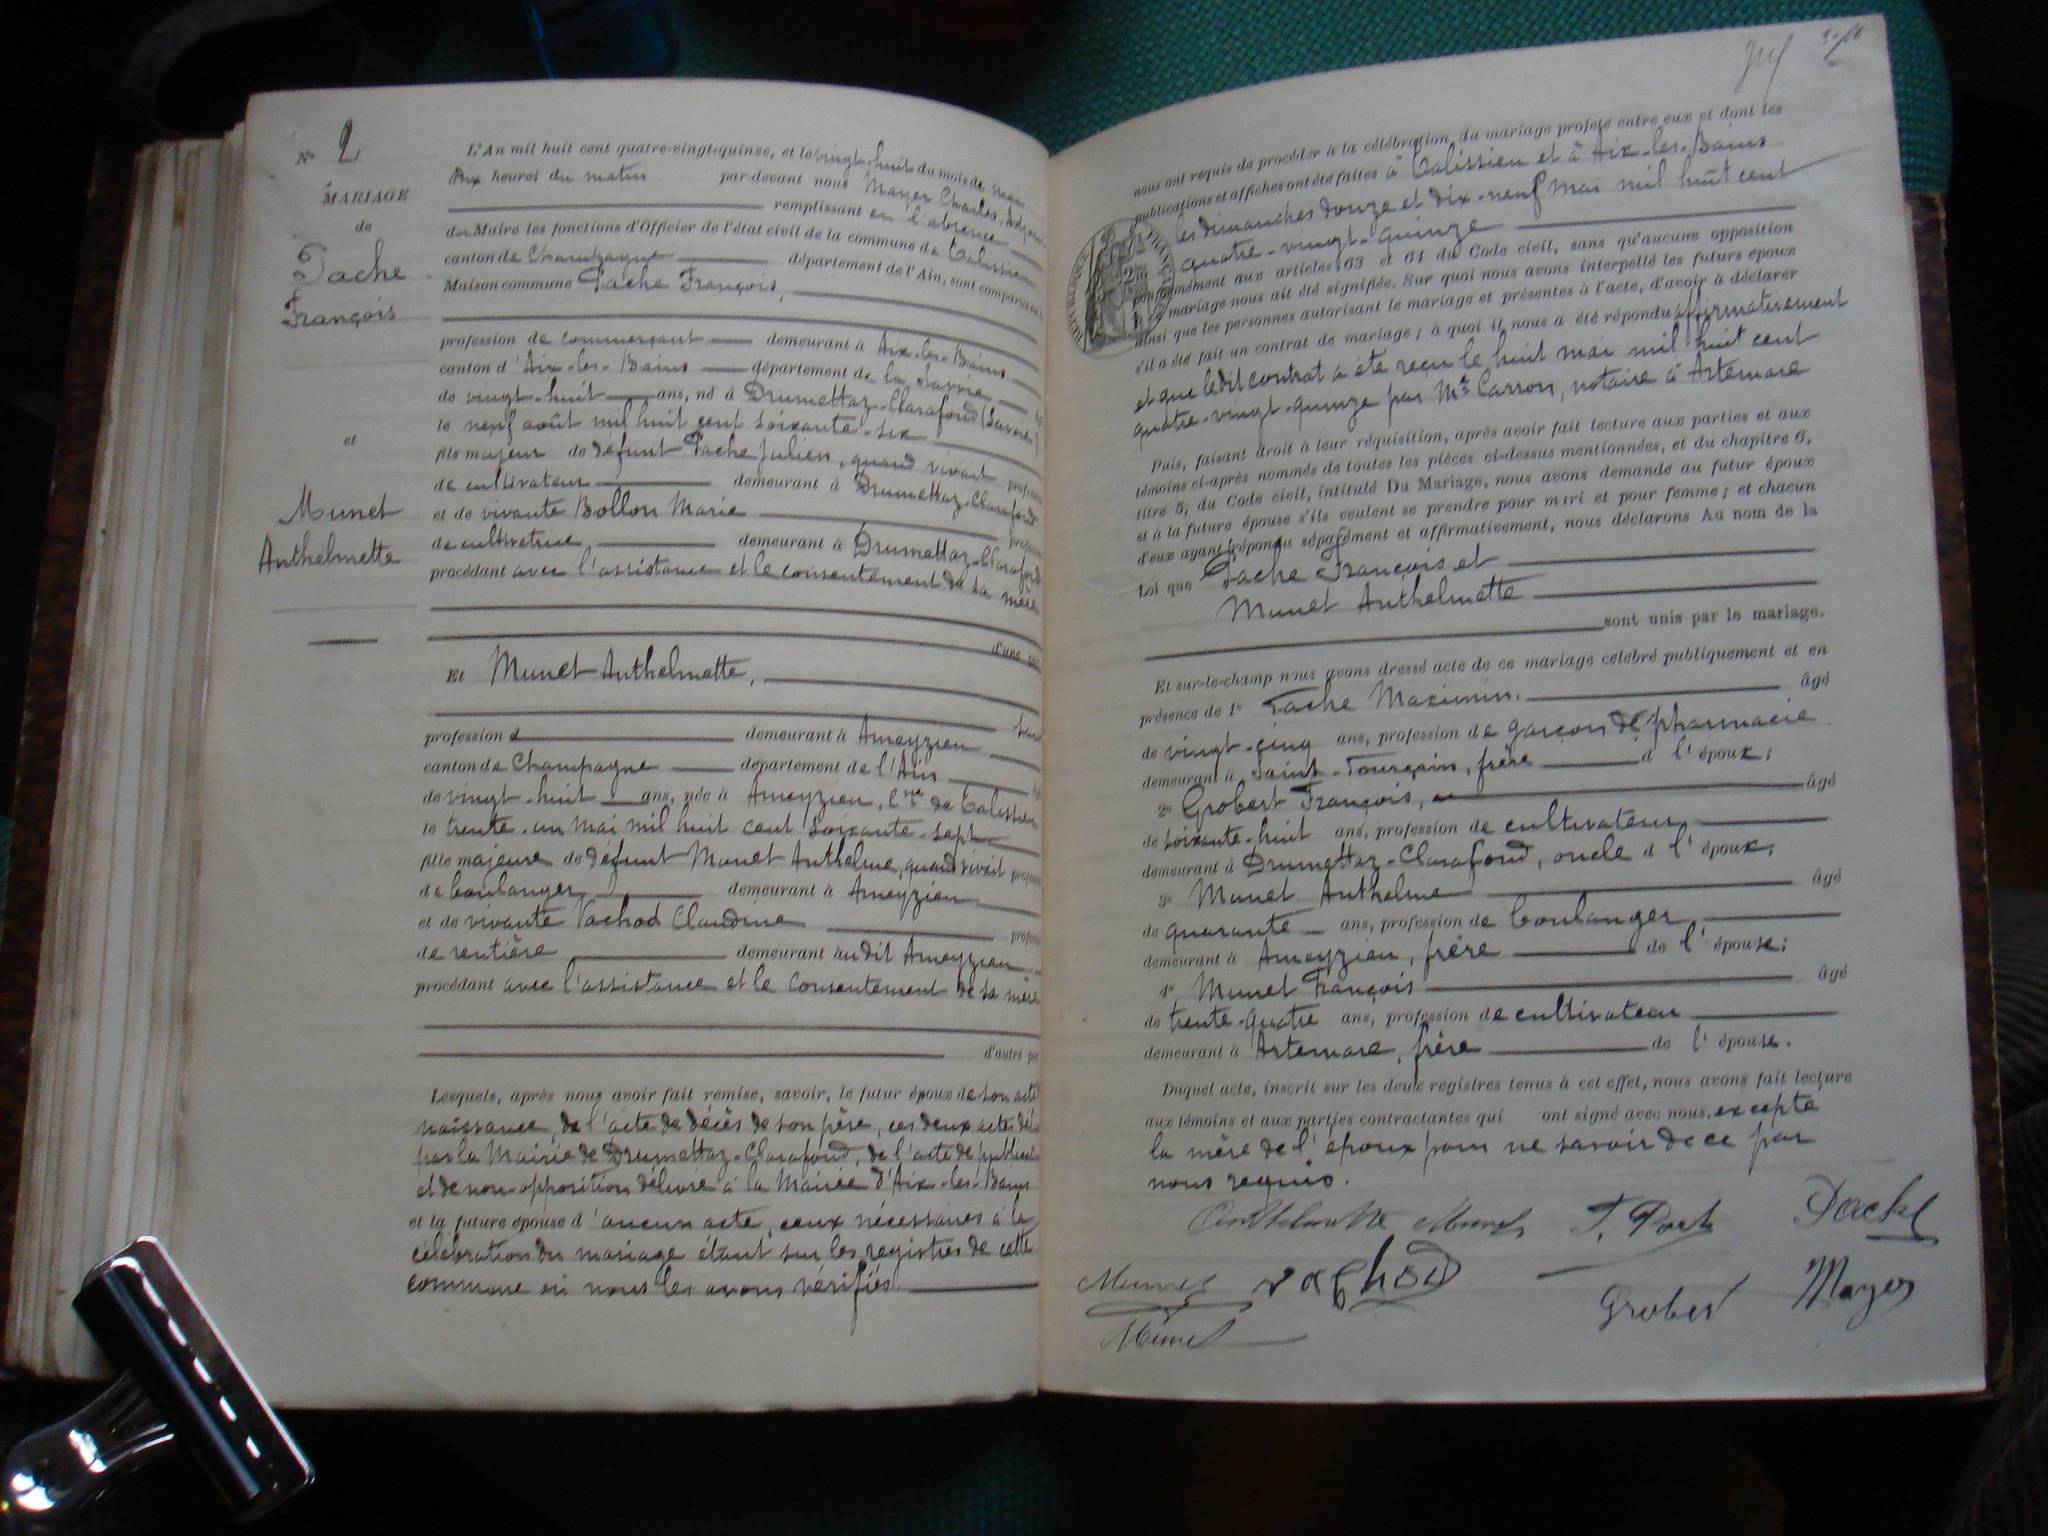 N° 2
MARIAGE
de
Pache
François
et
Munet
Anthelmette
L'An mil huit cent quatre-vingt-quinze, et le vingt-huit du mois de mai
dix heures du matin par-devant nous Mayer Charles, Adjoint
remplissant en l'absence
du Maire les fonctions d'Officier de l'état civil de la commune de Talissieu
canton de Champagne département de l'Ain, sont comparus en la
Maison commune Pache François,
profession de commerçant demeurant à Aix-les-Bains
canton d'Aix-les-Bains département de la Savoie
de vingt-huit ans, né à Drumettaz-Clarafond (Savoie)
le neuf août mil huit cent soixante-six
fils majeur de défunt Pache Julien, quand vivait profession
de cultivateur demeurant à Drumettaz-Clarafond
et de vivante Bollon Marie profession
de cultivatrice, demeurant à Drumettaz-Clarafond
procédant avec l'assistance et le consentement de sa mère
d'une part
Et Munet Anthelmette,
sans
profession d demeurant à Ameyzieu
canton de Champagne département de l'Ain
de vingt-huit ans, née à Ameyzieu, cne de Talissieu
le trente-un mai mil huit cent soixante-sept
fille majeure de défunt Munet Anthelme, quand vivait profession
de boulanger demeurant à Ameyzieu
et de vivante Vachod Claudine profession
de rentière demeurant audit Ameyzieu
procédant avec l'assistance et le consentement de sa mère
d'autre part
Lesquels, après nous avoir fait remise, savoir, le futur époux de son acte
naissance, de l'acte de décès de son père, ces deux actes dél
par la Mairie de Drumettaz-Clarafond, de l'acte de publication
et de non-opposition délivré à la Mairie d'Aix-les-Bains
et la future épouse d'aucun acte, ceux nécessaires à la
célébration du mariage étant sur les registres de cette
commune où nous les avons vérifiés.
nous ont requis de procéder à la célébration du mariage projeté entre eux et dont les
publications et affiches ont été faites à Talissieu et à Aix-les-Bains
les dimanches douze et dix-neuf mai mil huit cent
quatre-vingt-quinze
conformément aux articles 63 et 64 du Code civil, sans qu'aucune opposition
à ce mariage nous ait été signifiée. Sur quoi nous avons interpellé les futurs époux
ainsi que les personnes autorisant le mariage et présentes à l'acte, d'avoir à déclarer
s'il a été fait un contrat de mariage; à quoi il nous a été répondu affirmativement
et que ledit contrat a été reçu le huit mai mil huit cent
quatre-vingt-quinze par Me Carron, notaire à Artemare
Puis, faisant droit à leur réquisition, après avoir fait lecture aux parties et aux
témoins ci-après nommés de toutes les pièces ci-dessus mentionnées, et du chapitre 6,
titre 5, du Code civil, intitulé Du Mariage, nous avons demandé au futur époux
et à la future épouse s'ils veulent se prendre pour mari et pour femme; et chacun
d'eux ayant répondu séparément et affirmativement, nous déclarons Au nom de la
Loi que Pache François et
Munet Anthelmette
sont unis par le mariage.
Et sur-le-champ nous avons dressé acte de ce mariage célébré publiquement et en
présence de 1° Pache Maximin, âgé
de vingt-cinq ans, profession de garçon de pharmacie
demeurant à Saint-Pourçain, frère d l'époux;
2° Grobert François, âgé
de soixante-huit ans, profession de cultivateur,
demeurant à Drumettaz-Clarafond, oncle d l'époux;
3° Munet Anthelme âgé
de quarante ans, profession de boulanger,
demeurant à Ameyzieu, frère de l'épouse;
4° Munet François âgé
de trente-quatre ans, profession de cultivateur
demeurant à Artemare, frère de l'épouse.
Duquel acte, inscrit sur les deux registres tenus à cet effet, nous avons fait lecture
aux témoins et aux parties contractantes qui ont signé avec nous, excepté
la mère de l'époux pour ne savoir de ce par
nous requis.
Anthelmette Munet Pache
Munet Vachod Grobert Mayer
Munet